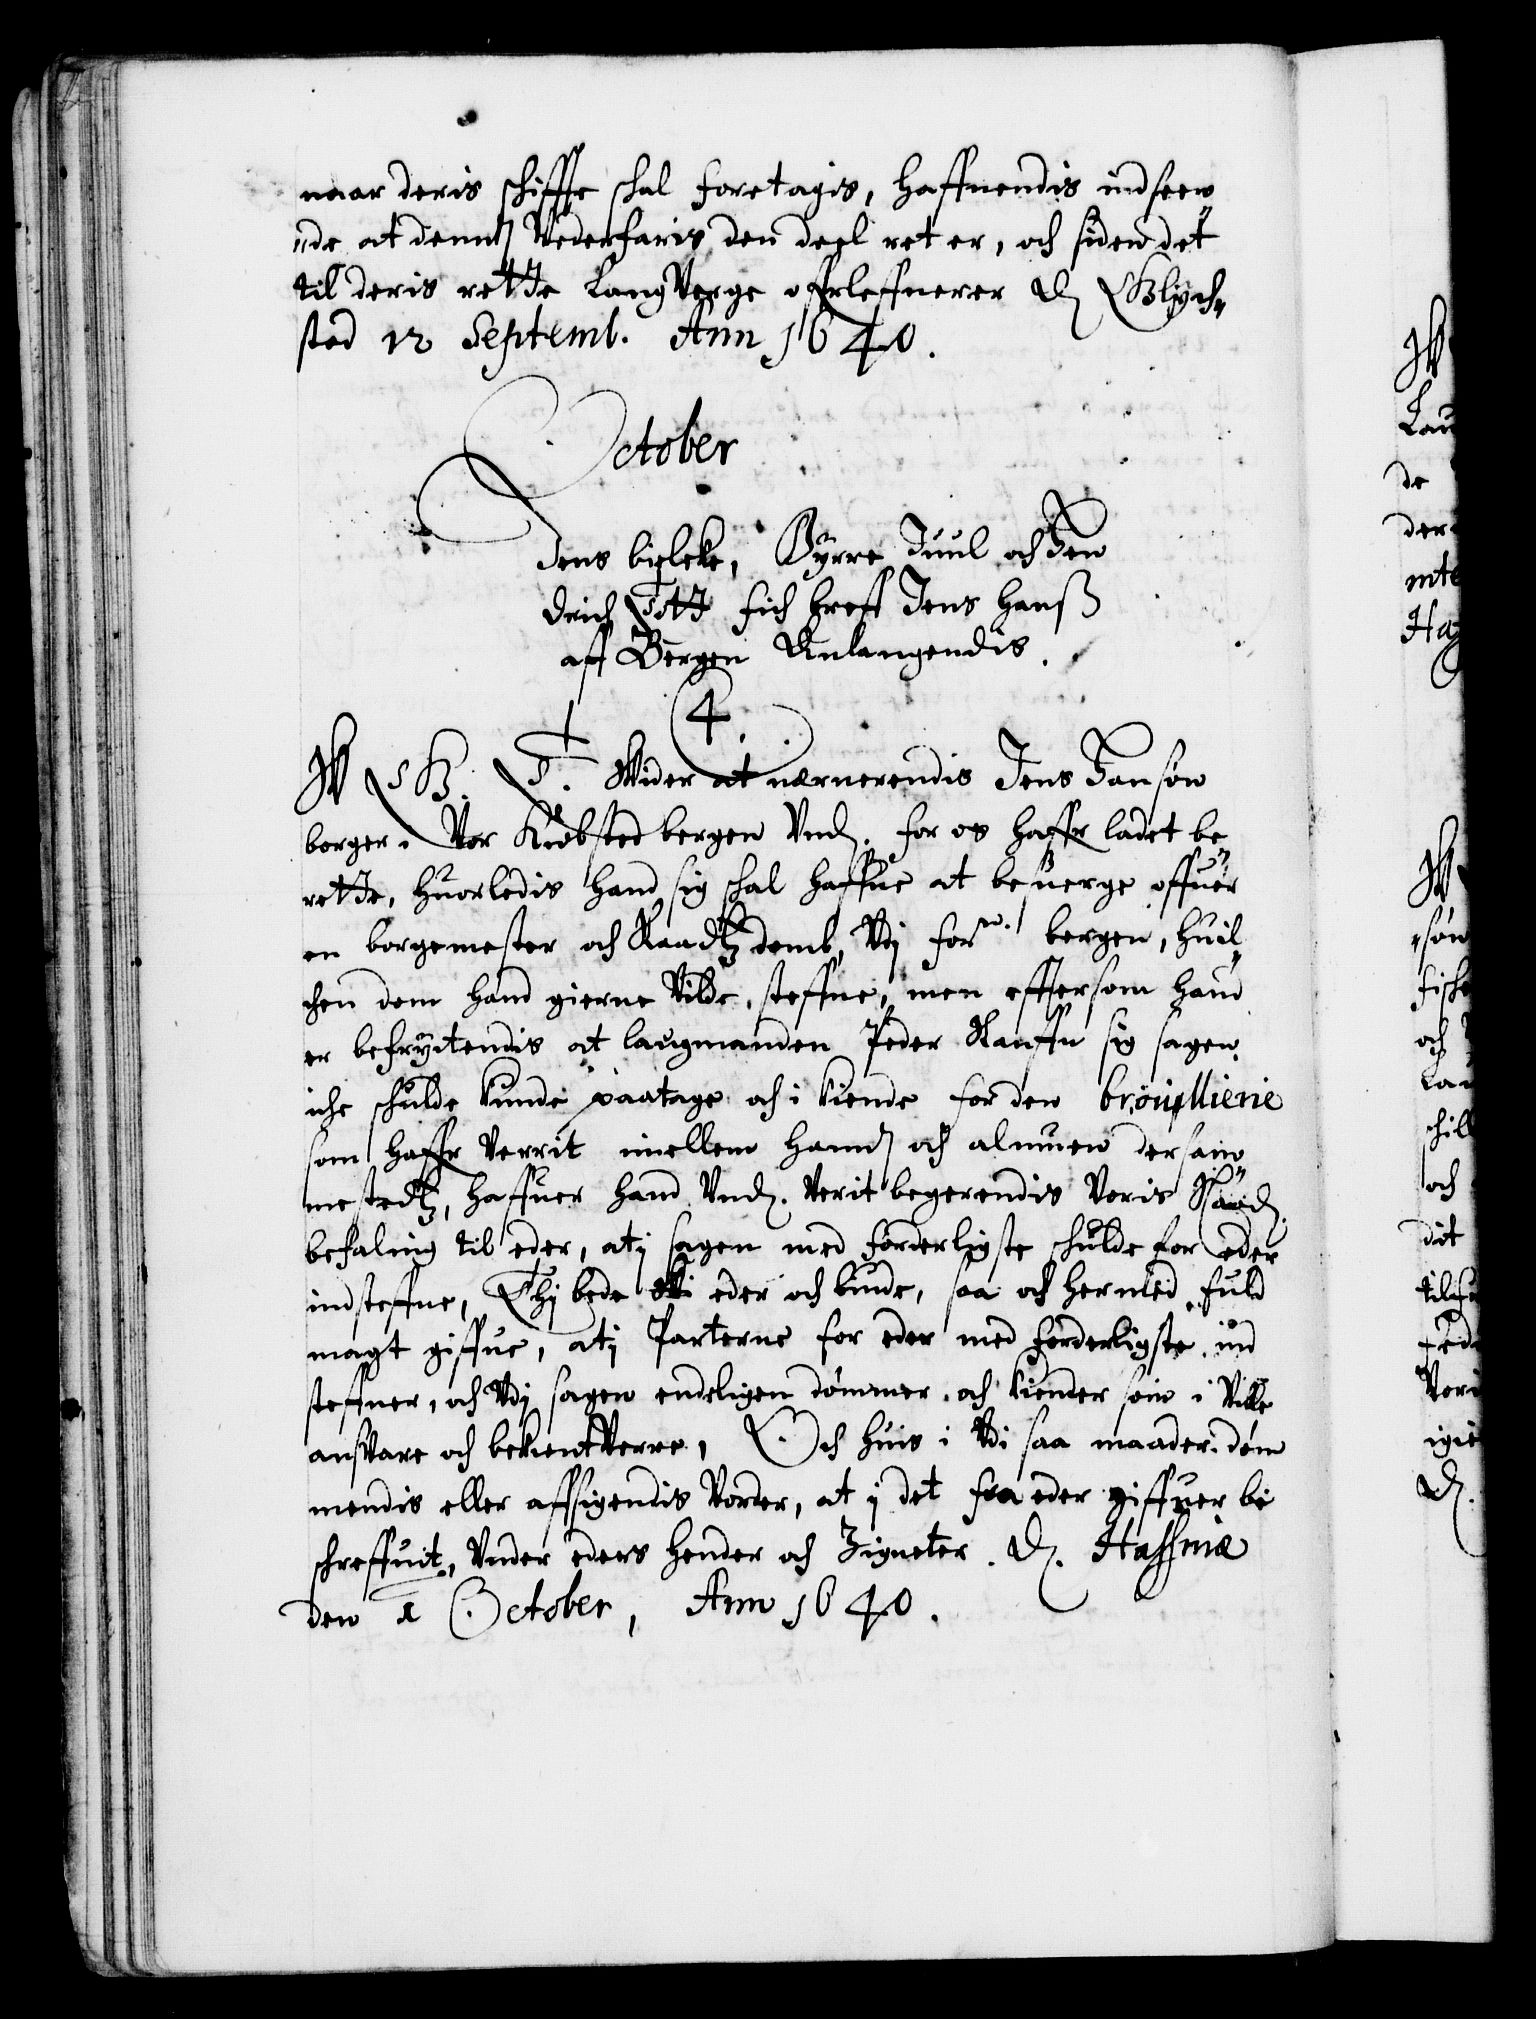 naar deris schiffte schal foretagis, haffuendis indseen
"de at dennem Vederfaris den deel ret er, och siden det
til deris rette Laugverge offrleffuerer D Glych"
sted 12 Septemb. Ann 1640.
October
Jens bielcke, Byrre Juul och Hen
drich Tott fich breff Jens Hanß
aff Bergen Anlangendis.
4.
W G. T. Wider at nerverendis Jens Hansøn
borger i Vor Kiøbsted bergen Vnd. for os haffr ladet be
rette, huorledis hand sig schal haffue at besuerge offuer
en borgemester och Raadtz domb, Vdj forn. bergen, huil"
chen dom hand gierne Vilde steffne, men efftersom hand
er befrychtendis at laugmanden Peder sig sagen
iche schulde kunde paatage och i kiende for den brouillierie
som haffr Verrit imellem hannem och almuen dersam
mestedtz, haffuer hand Vnd. Verit begerendis Voris Naad.
befaling til eder, atj sagen med forderligste schulde for eder
indsteffne, Thj bede Wi eder och biude, saa och hermed fuld
magt giffue, atj Parterne for eder med forderligste ind
steffner, och Vdj sagen endeligen dømmer och kiender som i Ville
ansvare och bekient Verre, Och huis i Vdi saa maader døm
mendis eller affsigendis Vorder, at j det fra eder giffuer be
schreffuit, Vnder eders hender och Zigneter. D. Haffniæ
den 1 October, Ann 1640.